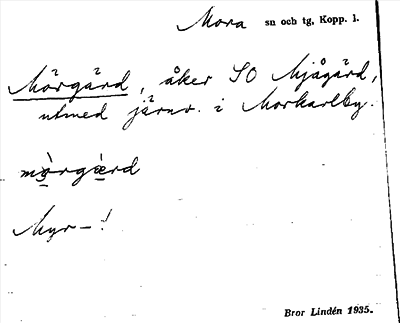 Mora sn och tg, Kopp. l.
Mörgård, åker SO Mjågård,
utmed järnv. i Morkarlby.
mö̀rgæ̀rd
Myr-!
Bror Lindén 1935.